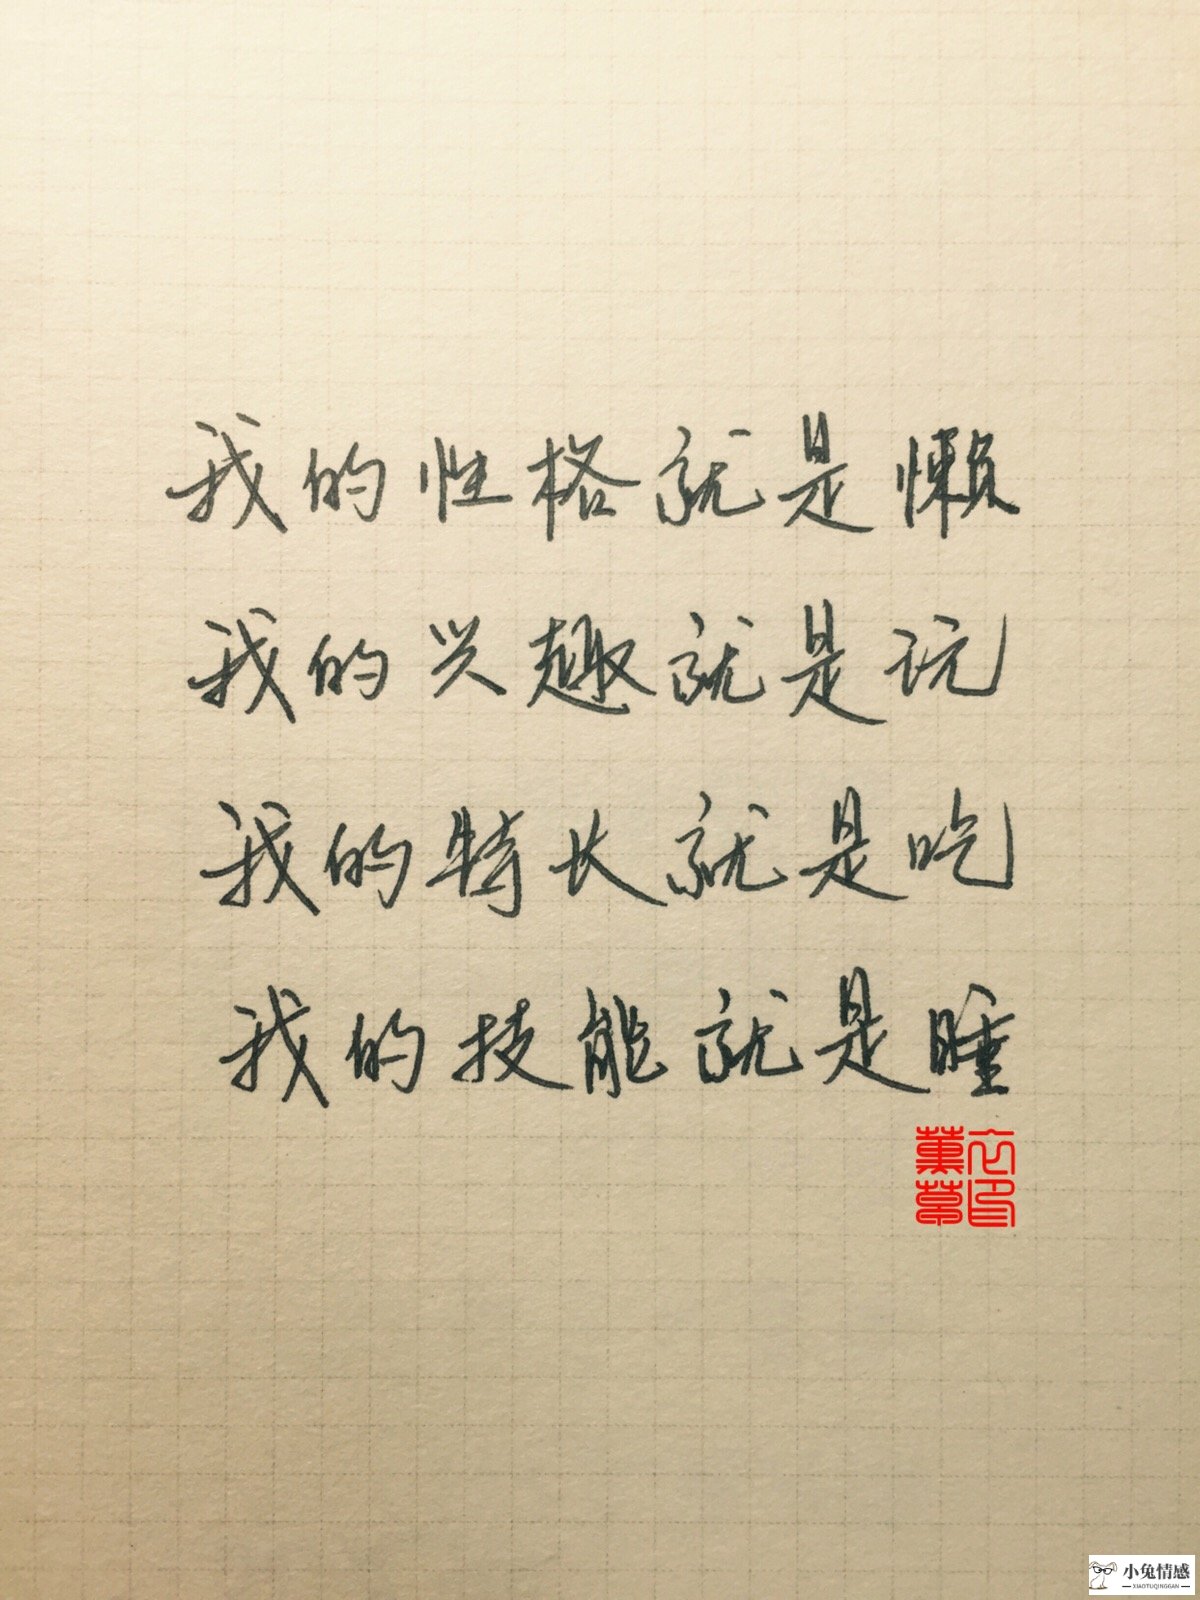 我的性格就是懒
我的兴趣就是玩
我的特长就是吃
我的技能就是睡
小兔情感
XIAOTUQINGGAN